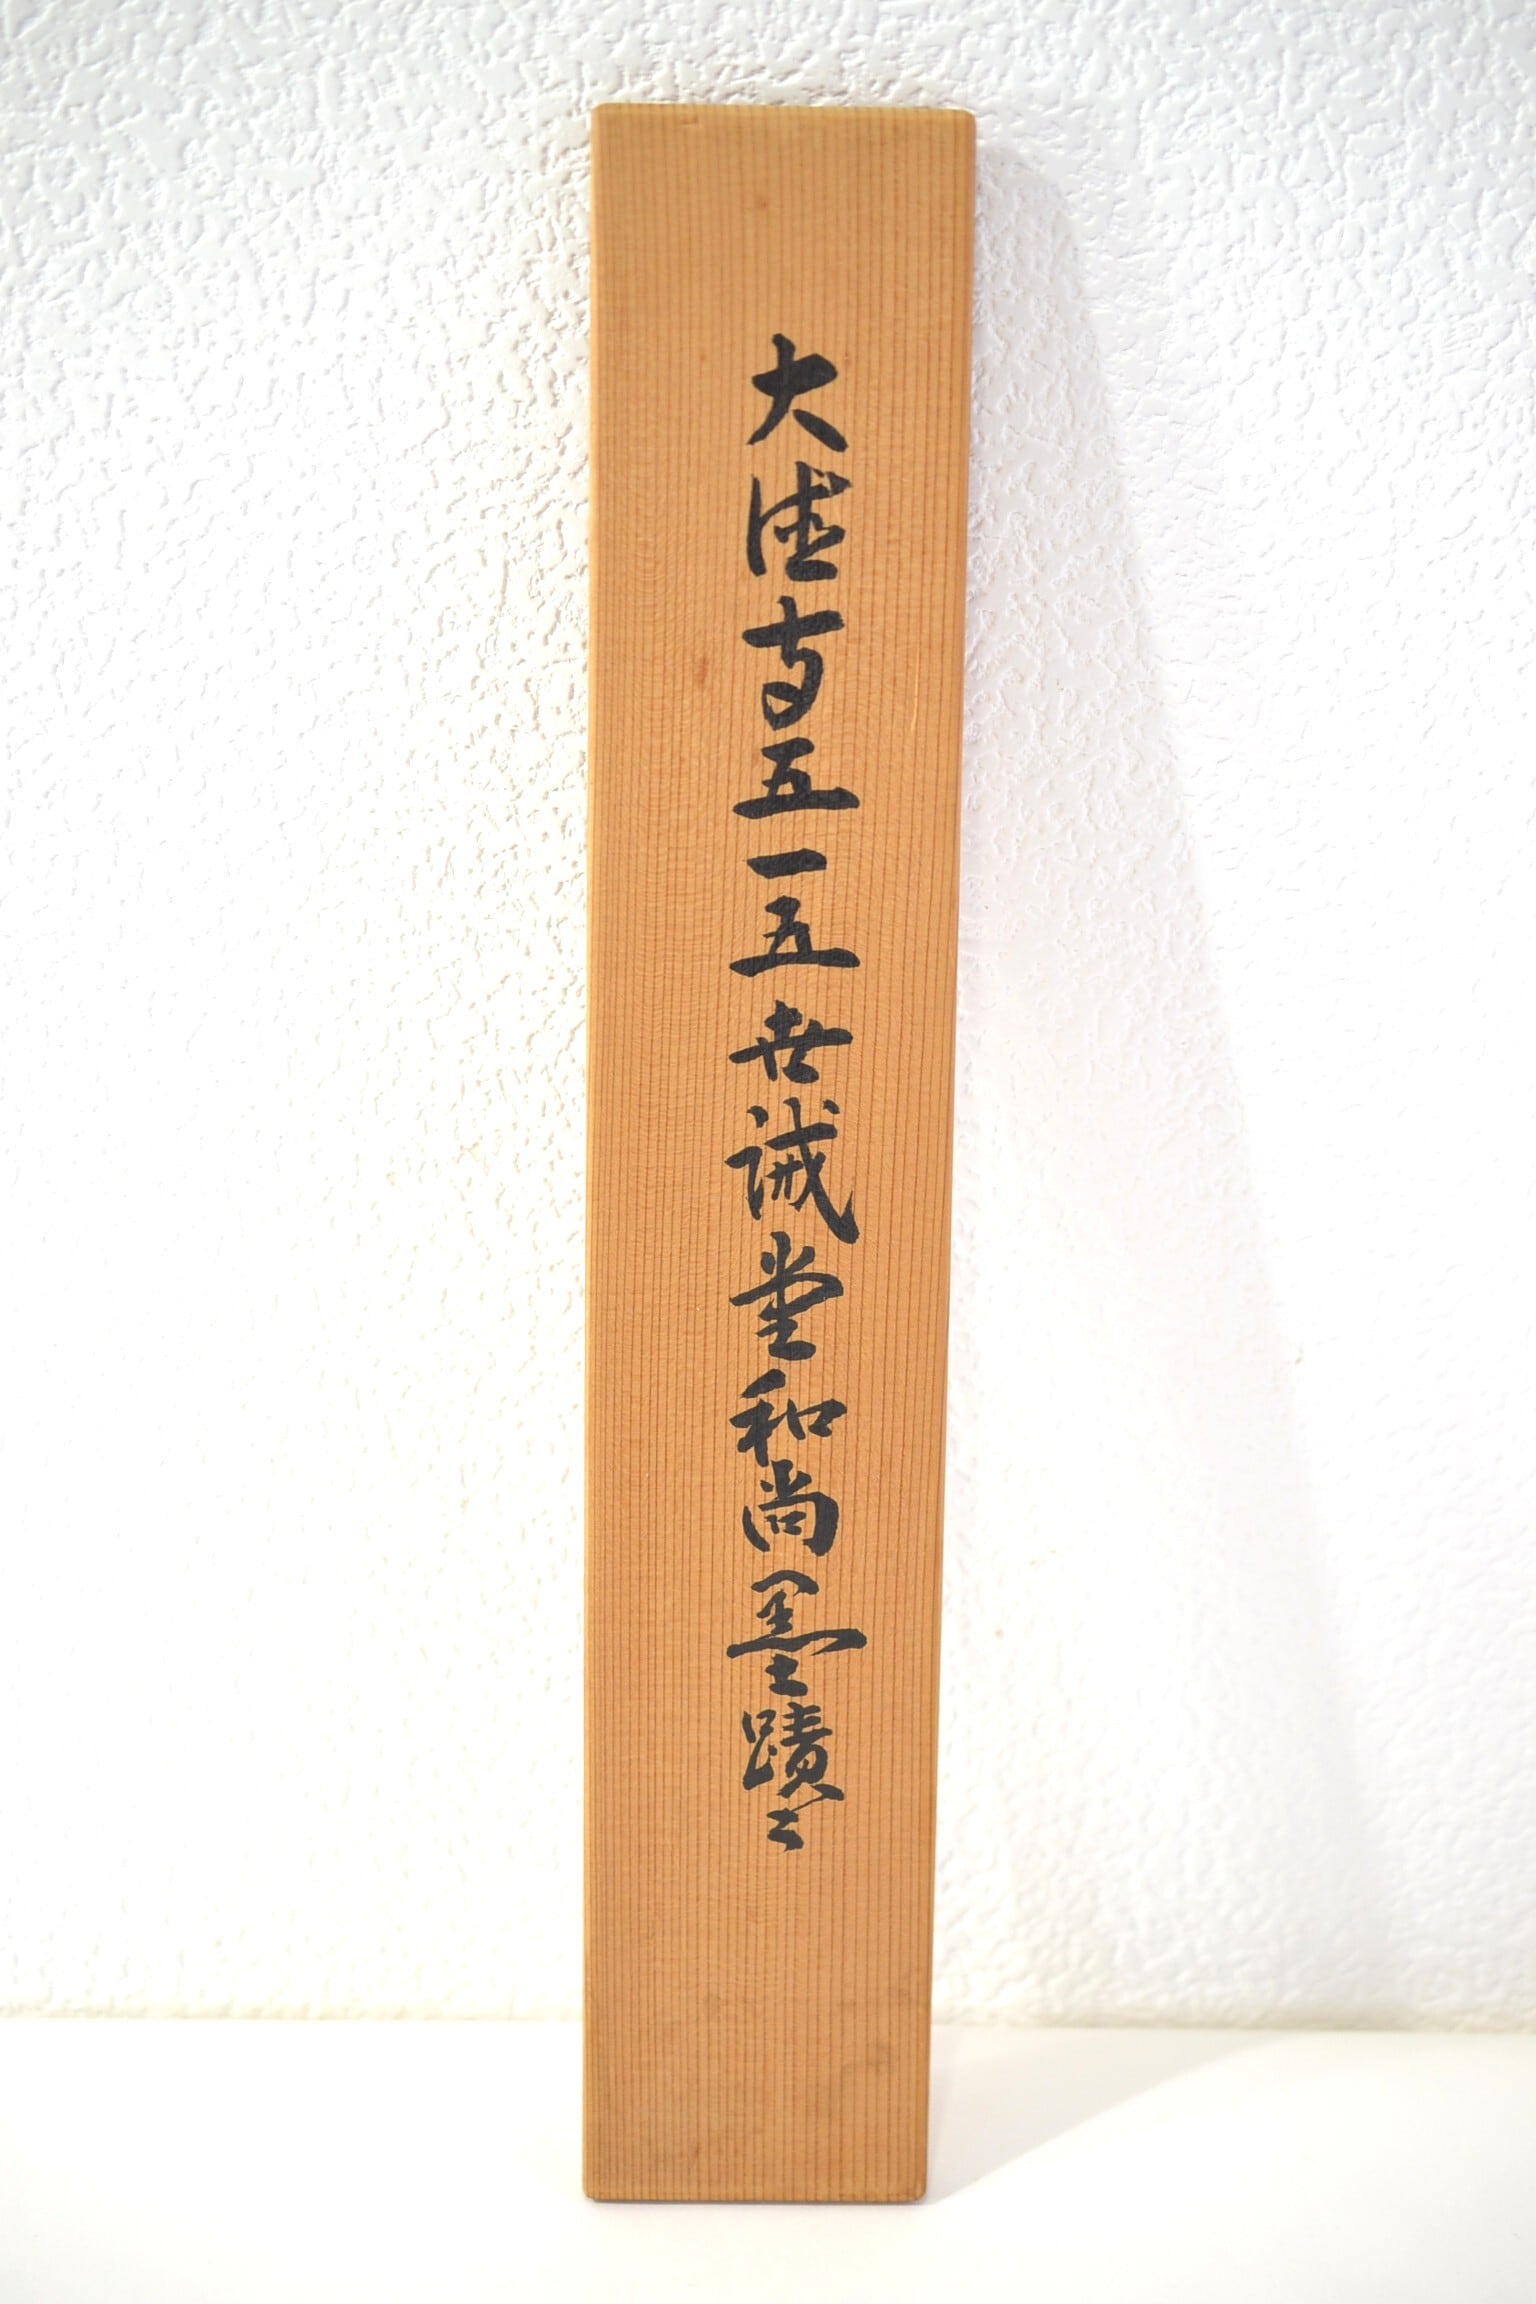 大徳寺五一五世誡堂和尚墨蹟